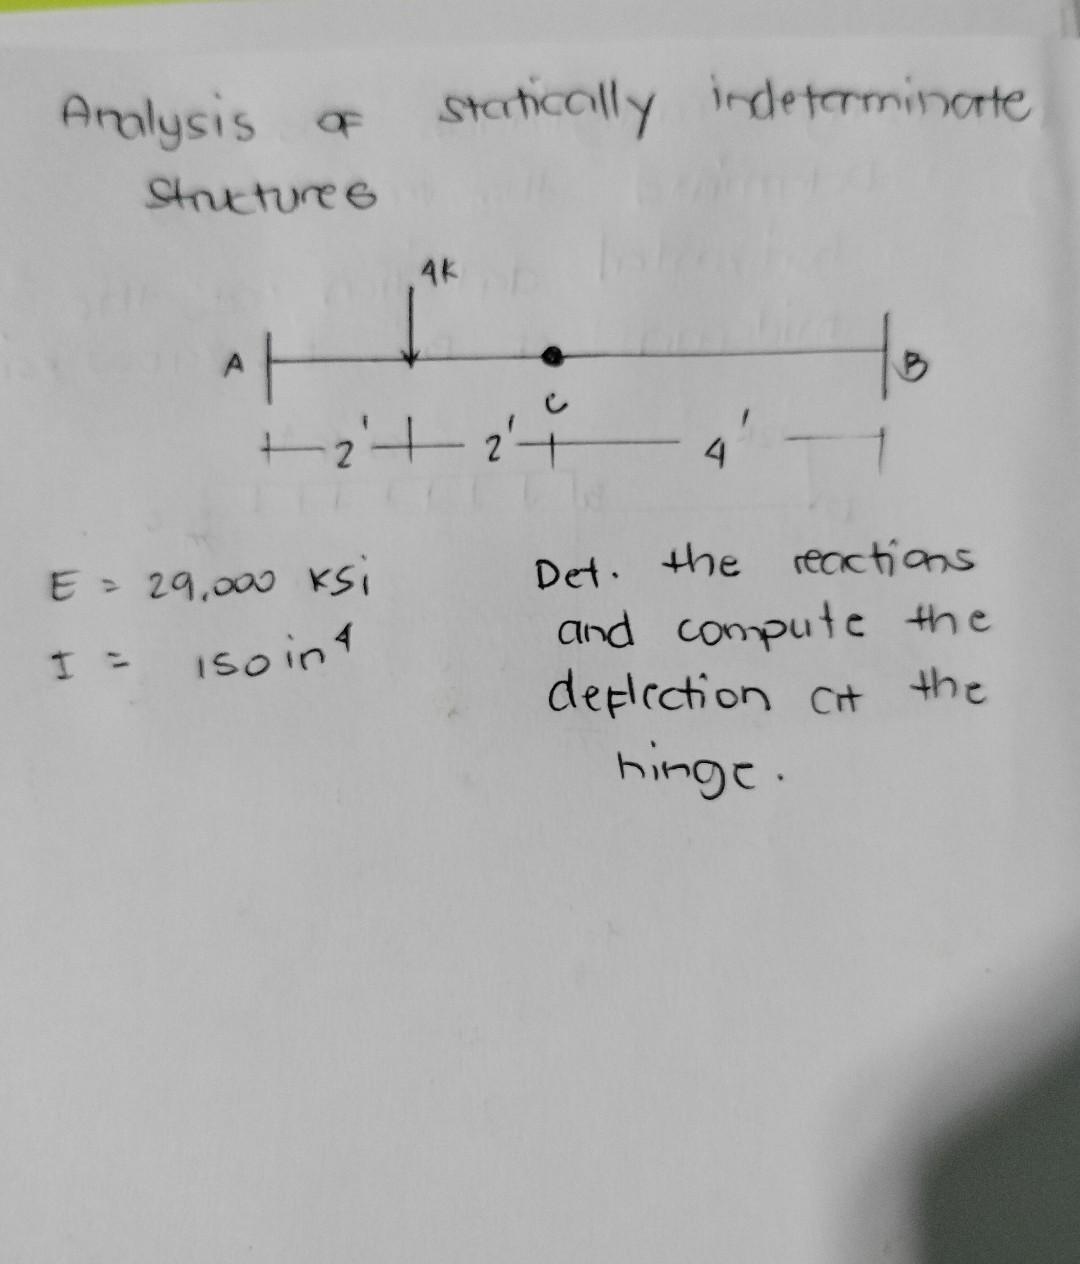 Analysis of statically indeterminate
Structures
4K
A
B
C
2'
2'
4'
E = 29,000 ksi
I = 150 in⁴
Det. the reactions
and compute the
deflection at the
hinge.